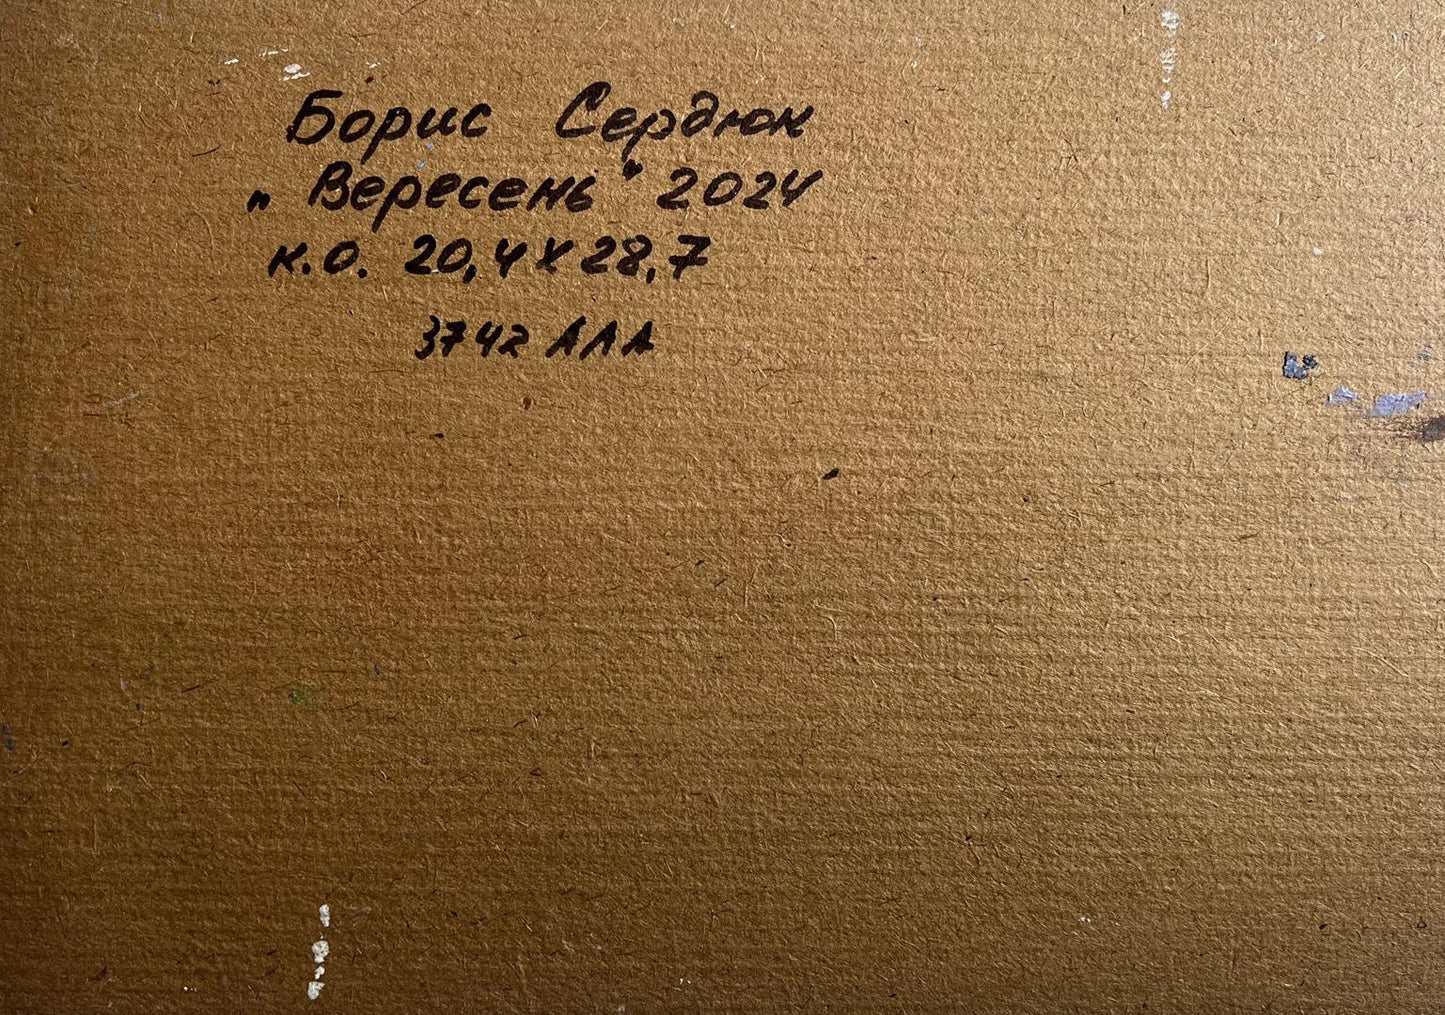 Борис Сердюк
„Вересень" 2024
к.о. 20,4х28,7
3742 АЛА